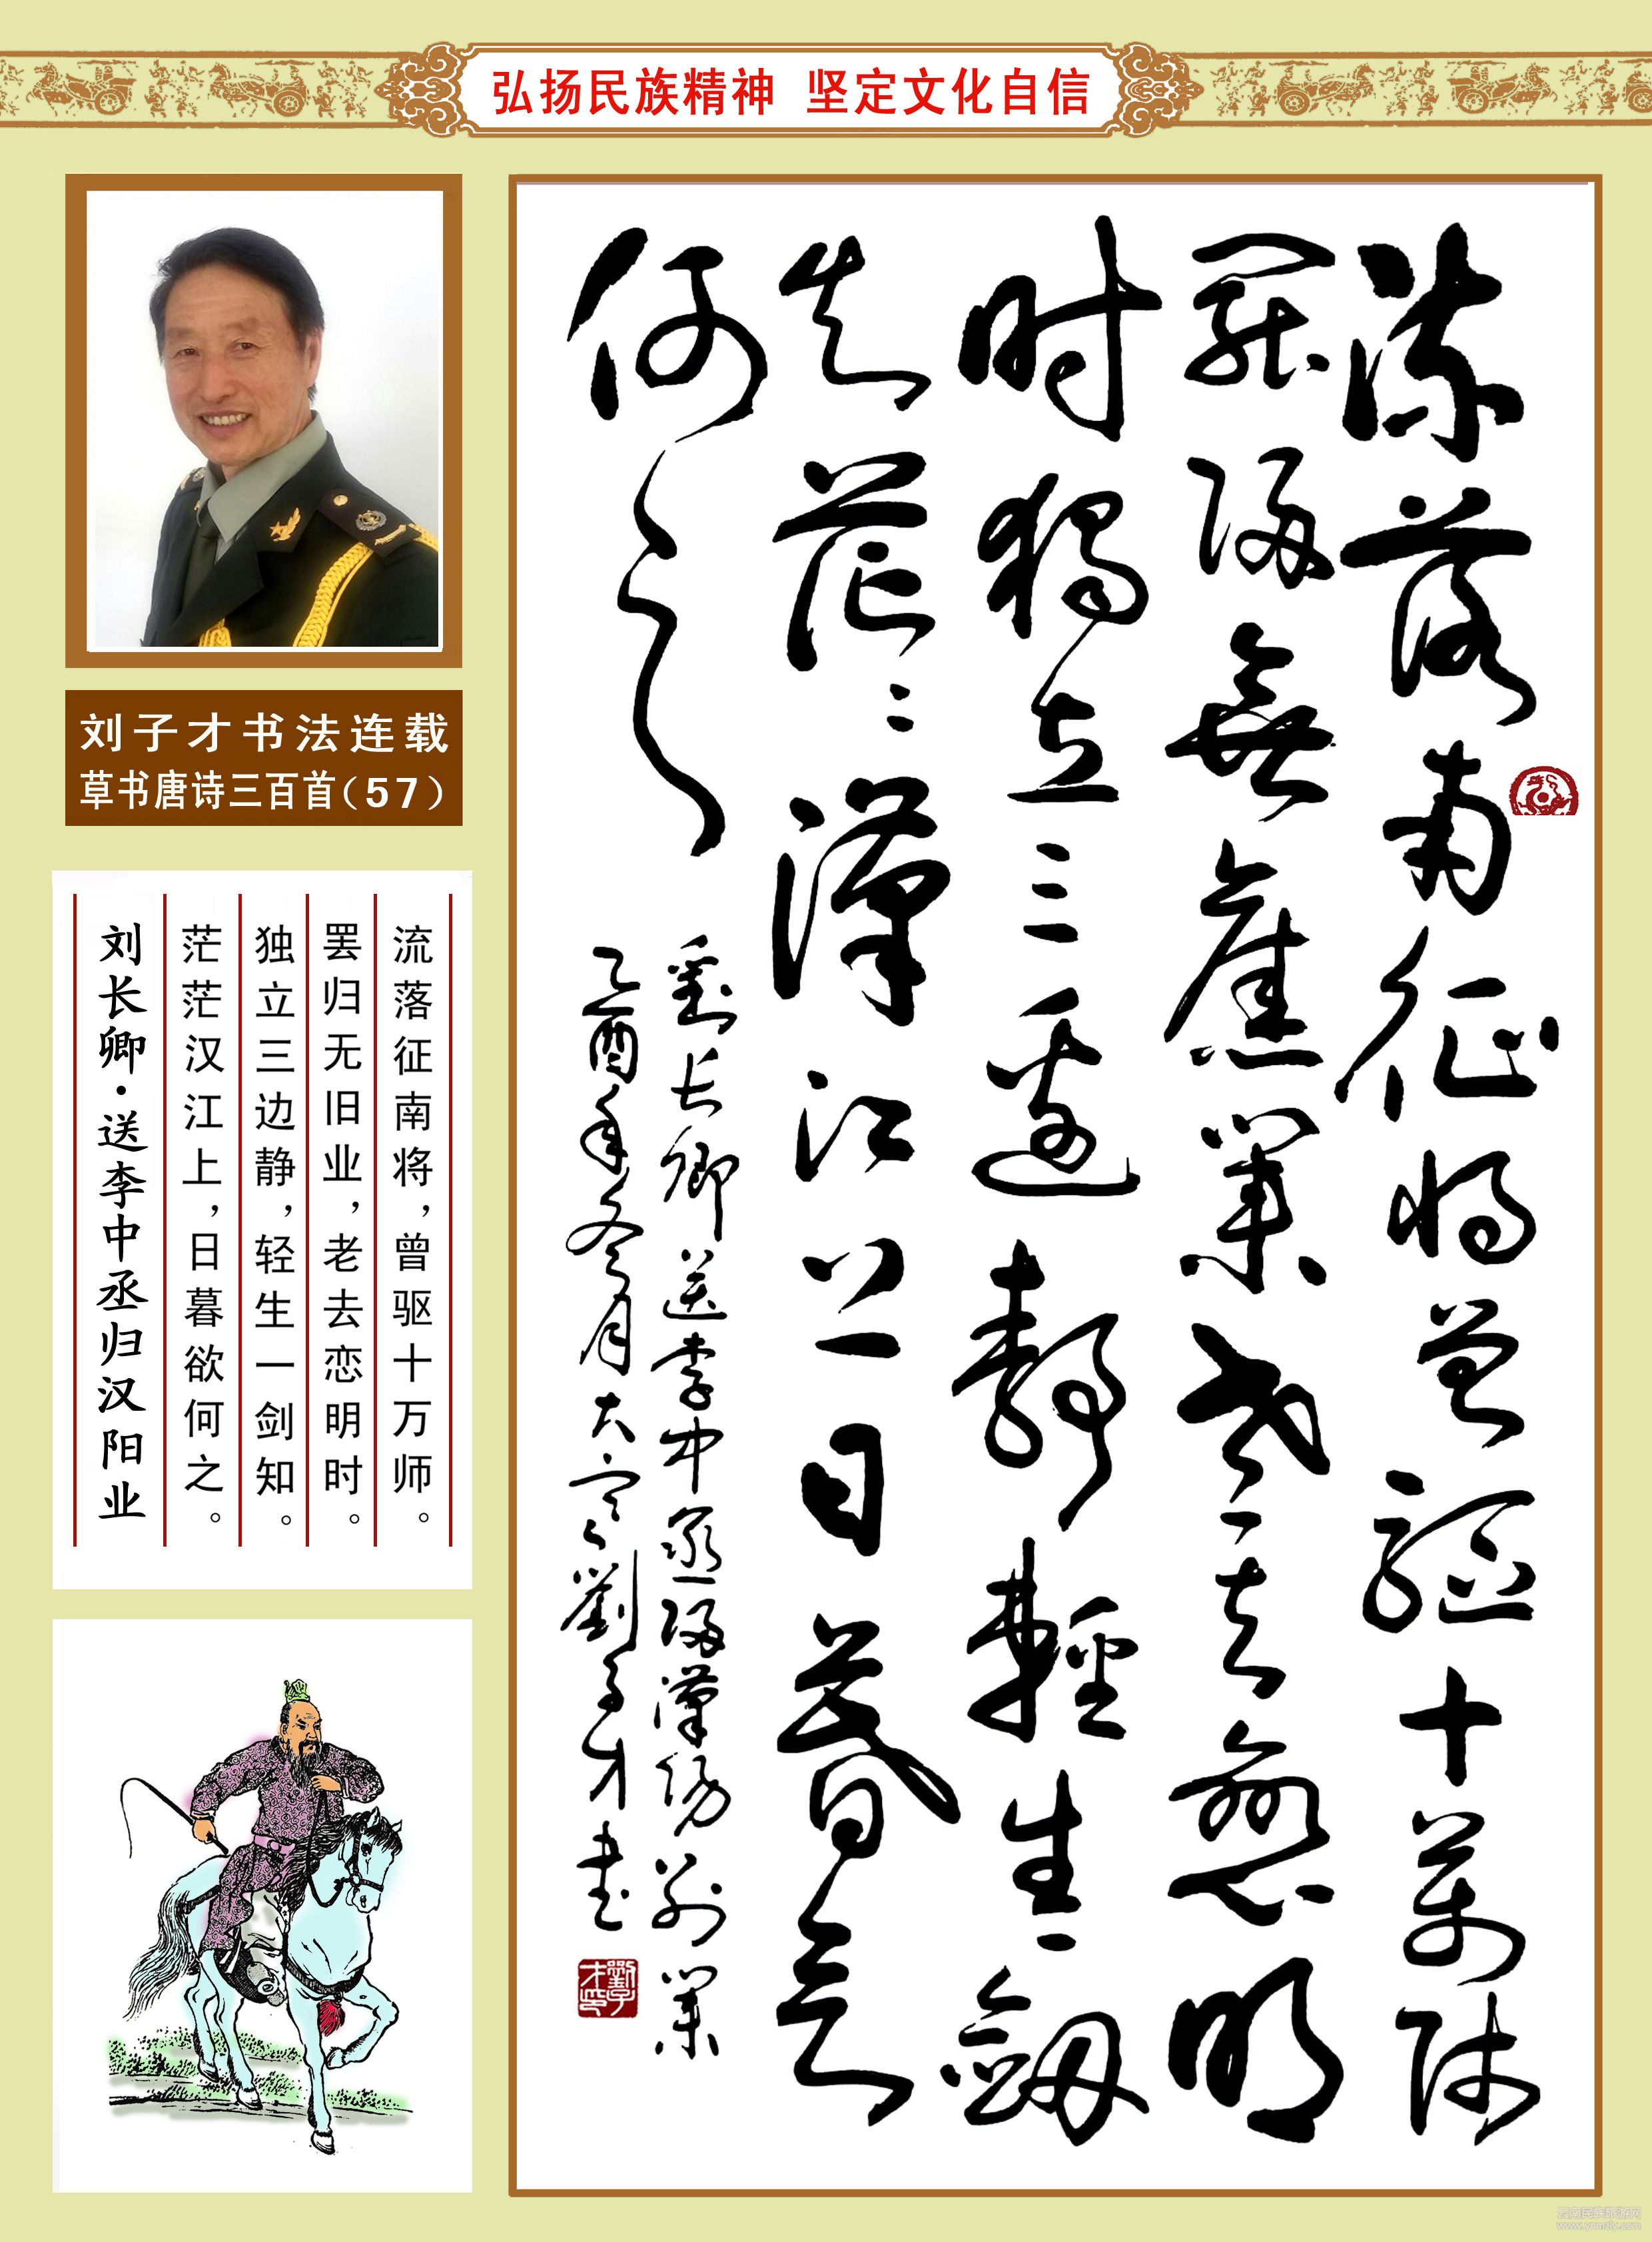 弘扬民族精神 坚定文化自信
刘子才书法连载
草书唐诗三百首（57）
流落征南将，曾驱十万师。
罢归无旧业，老去恋明时。
独立三边静，轻生一剑知。
茫茫汉江上，日暮欲何之。
刘长卿·送李中丞归汉阳业
流落南征将曾驅十萬師
罷歸無舊業老去戀明
时獨立三邊靜輕生一劍
知茫〻漢江上日暮欲
何之
劉長卿送李中丞歸漢陽别業
乙酉年冬月大寒劉子才书
劉子才印